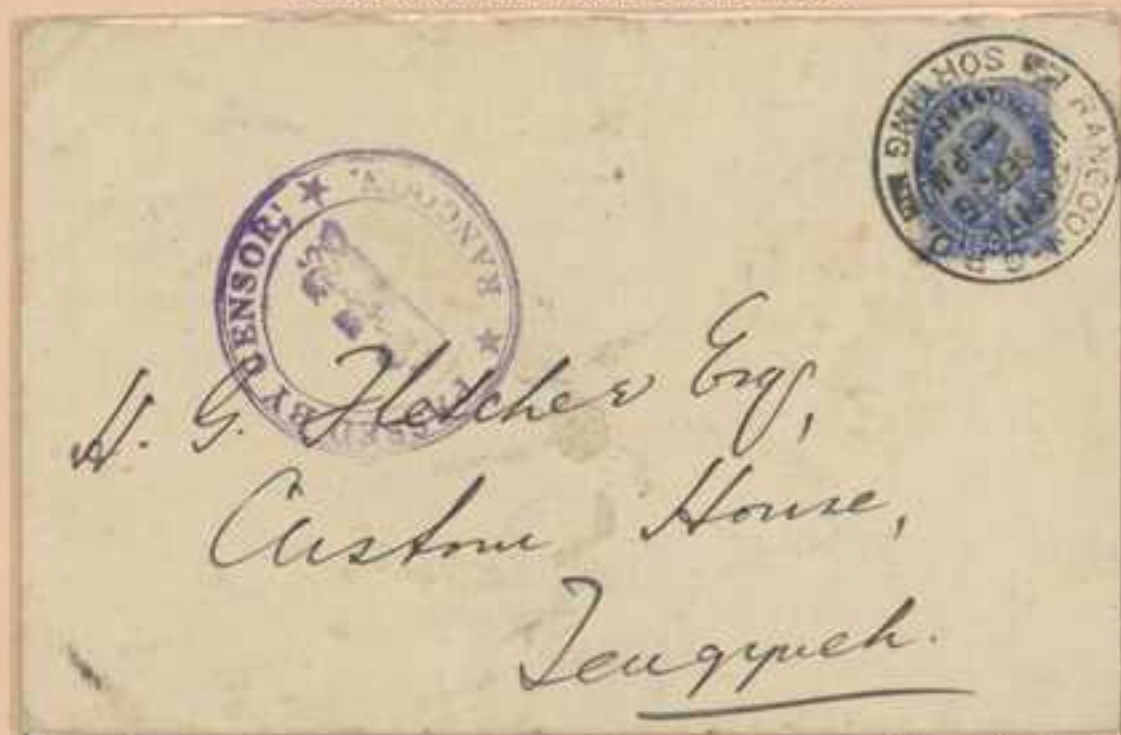 RANGOON G.P.O.
SORTING
PASSED BY CENSOR,
RANGOON.
H. G. Fletcher Esq,
Custom House,
Tengyueh.